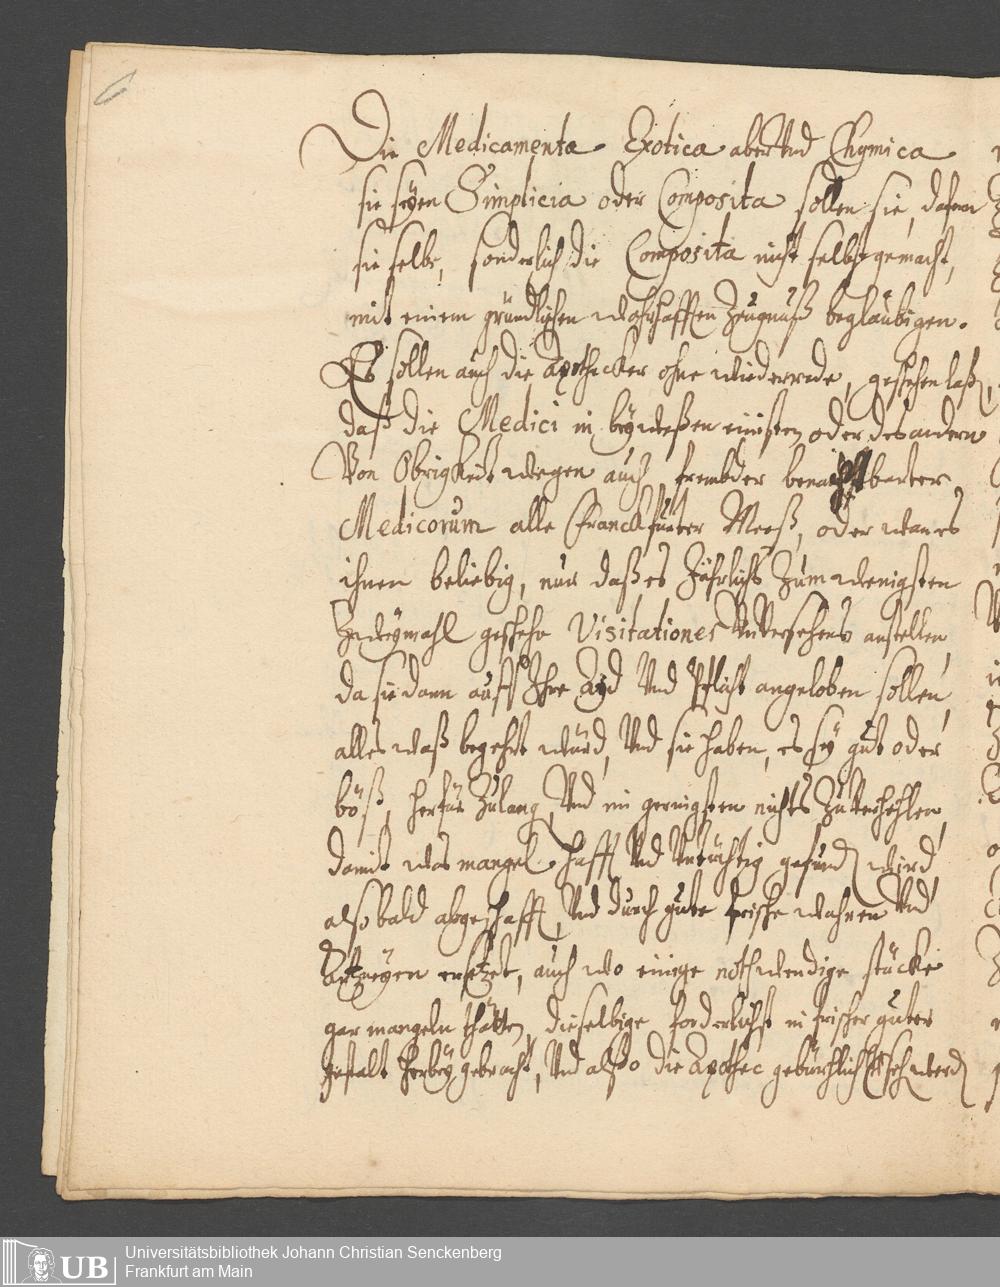 6
Die Medicamenta Exotica aber Vnd Chymica
sie seyen Simplicia oder Composita sollen sie, dafern
sie selbe, sonderlich die Composita nicht selbst gemacht,
mit einem gründlichen wahrhafften Zeugnuß beglaubigen.
Es sollen auch die Apothecker ohne wiederrede, geschehen laßen,
daß die Medici in beyweßen eines oder des andern
Von Obrigkeit wegen auch frembder benachbarter
Medicorum alle Franckfurter Meeß, oder wan es
ihnen beliebig, nur daß es Jährlich Zum wenigsten
Zweymahl geschehe Visitationes VnVersehens anstellen,
da sie dann auff Ihre Ayd Vnd Pflicht angeloben sollen,
alles waß begehrt würd, Vnd sie haben, es sey gut oder
böß, herfür Zulang, Vnd im geringsten nichts ZuVerhehlen,
damit was mangelhafft Vnd Vntüchtig gefunden wird,
alsobald abgeschafft, Vnd durch gute frische wahren Vnd
Artzneyen ersetzet, auch wo einige nothwendige stücke
gar mangeln thätten, dieselbige forderlichst in frischer guter
gestalt herbey gebracht, Vnd alßo die Apothec gebührlich werden
UB
Universitätsbibliothek Johann Christian Senckenberg
Frankfurt am Main